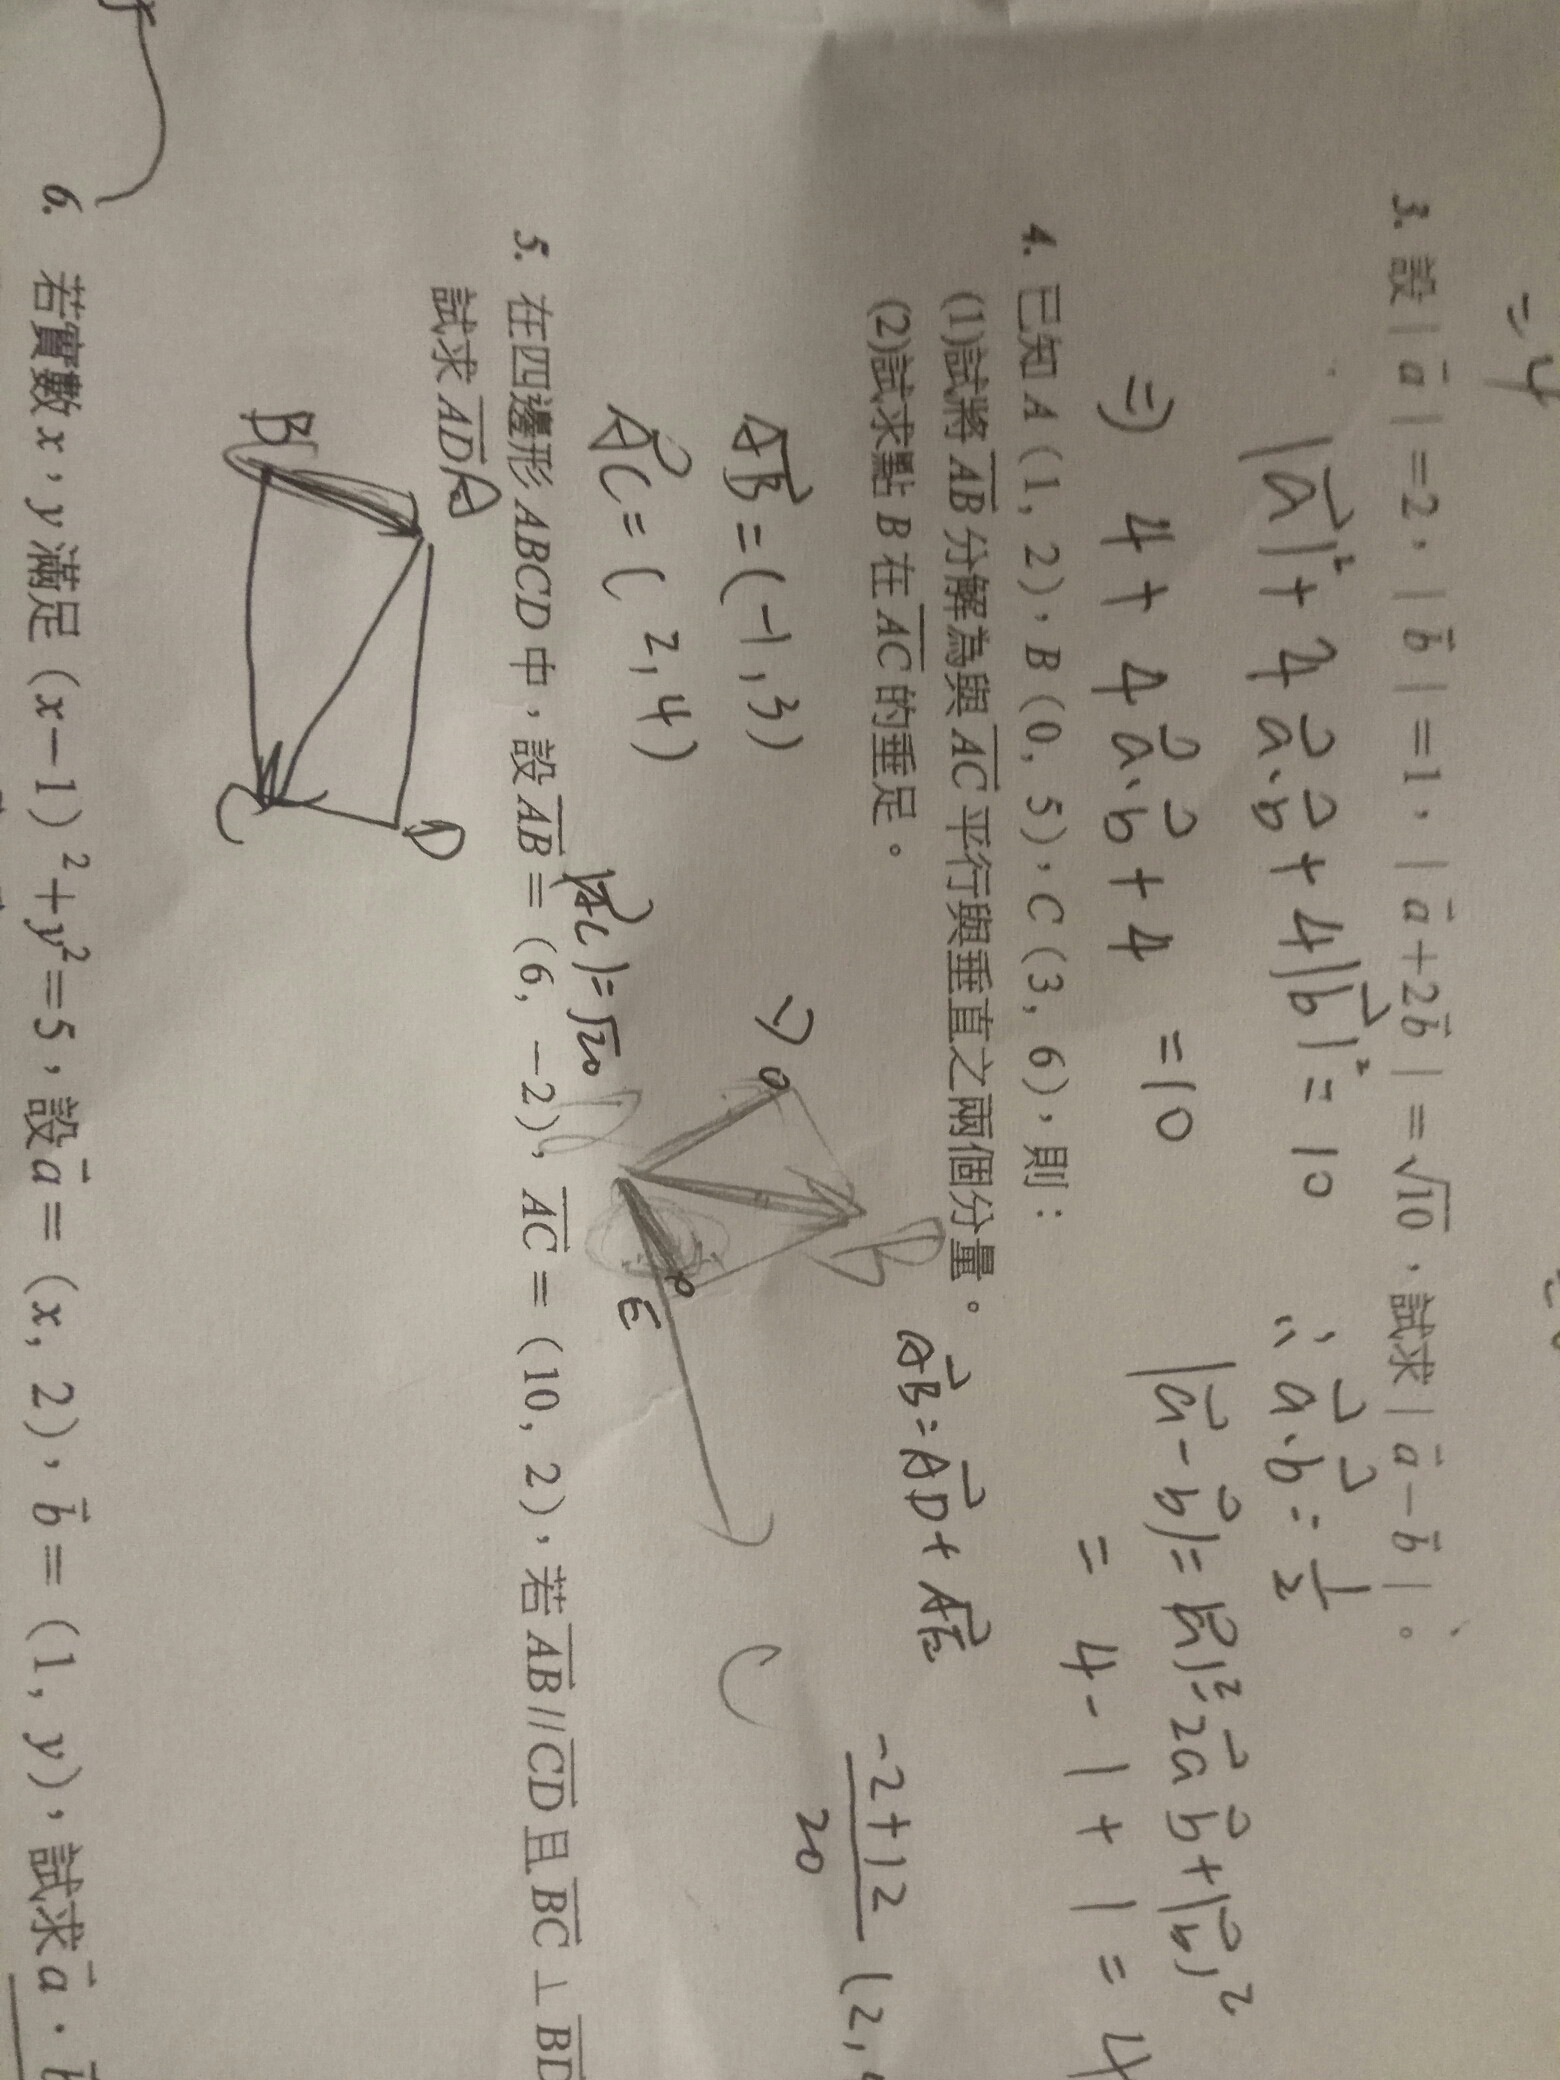 =4
3. 設|a⃗|=2，|b⃗|=1，|a⃗+2b⃗|=√10，試求|a⃗-b⃗|。
|a⃗|²+4a⃗·b⃗+4|b⃗|²=10
∴a⃗·b⃗=1/2
⇒ 4+4a⃗·b⃗+4 =10
|a⃗-b⃗|=|a⃗|²-2a⃗b⃗+|b⃗|²
= 4-1+1=4
4. 已知A(1, 2)，B(0, 5)，C(3, 6)，則：
(1)試將AB分解為與AC平行與垂直之兩個分量。
(2)試求點B在AC的垂足。
AB⃗=AD⃗+AE⃗
(-2+12)/20 (2,
AB⃗=(-1,3)
AC⃗=(2,4)
|AC⃗|=√20
D
B
E
C
5. 在四邊形ABCD中，設AB=(6, -2)，AC=(10, 2)，若AB//CD且BC⊥BD
試求AD
A
B
C
D
6. 若實數x，y滿足(x-1)²+y²=5，設a⃗=(x, 2)，b⃗=(1, y)，試求a⃗·b⃗